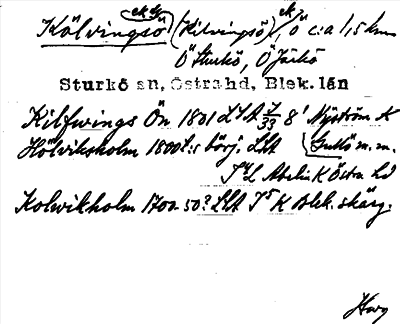 ek. kg.
Kölvingsö (Kilvingsö) ek., Ö c:a 1,5 km
Ö Sturkö, Ö Jätkö
Sturkö sn, Östra hd, Blek. län
Kilfwings Ön 1801 LSA 7/33 8' Nyström K
Hölviksholm 1800t:s börj. LSA Gullö m. m.
Abelin K Östra hd
Kolwikholm 1700-50? LSA K Blek. skärg.